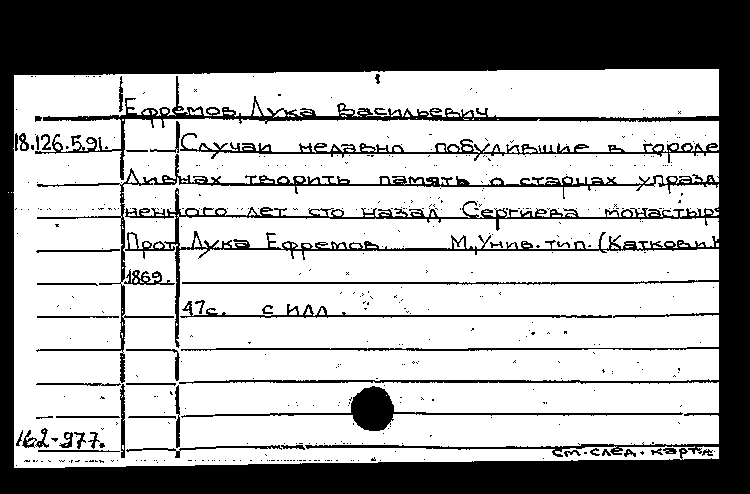 Ефремов, Лука Васильевич.
18.126.5.91. Случаи недавно побудившие в городе
Ливнах творить память о старцах упразд
ненного лет сто назад, Сергиева монастыря
Прот. Лука Ефремов. М., Унив. тип. (Катков и К
1869.
47с. с илл.
162-977.
см. след. карт.